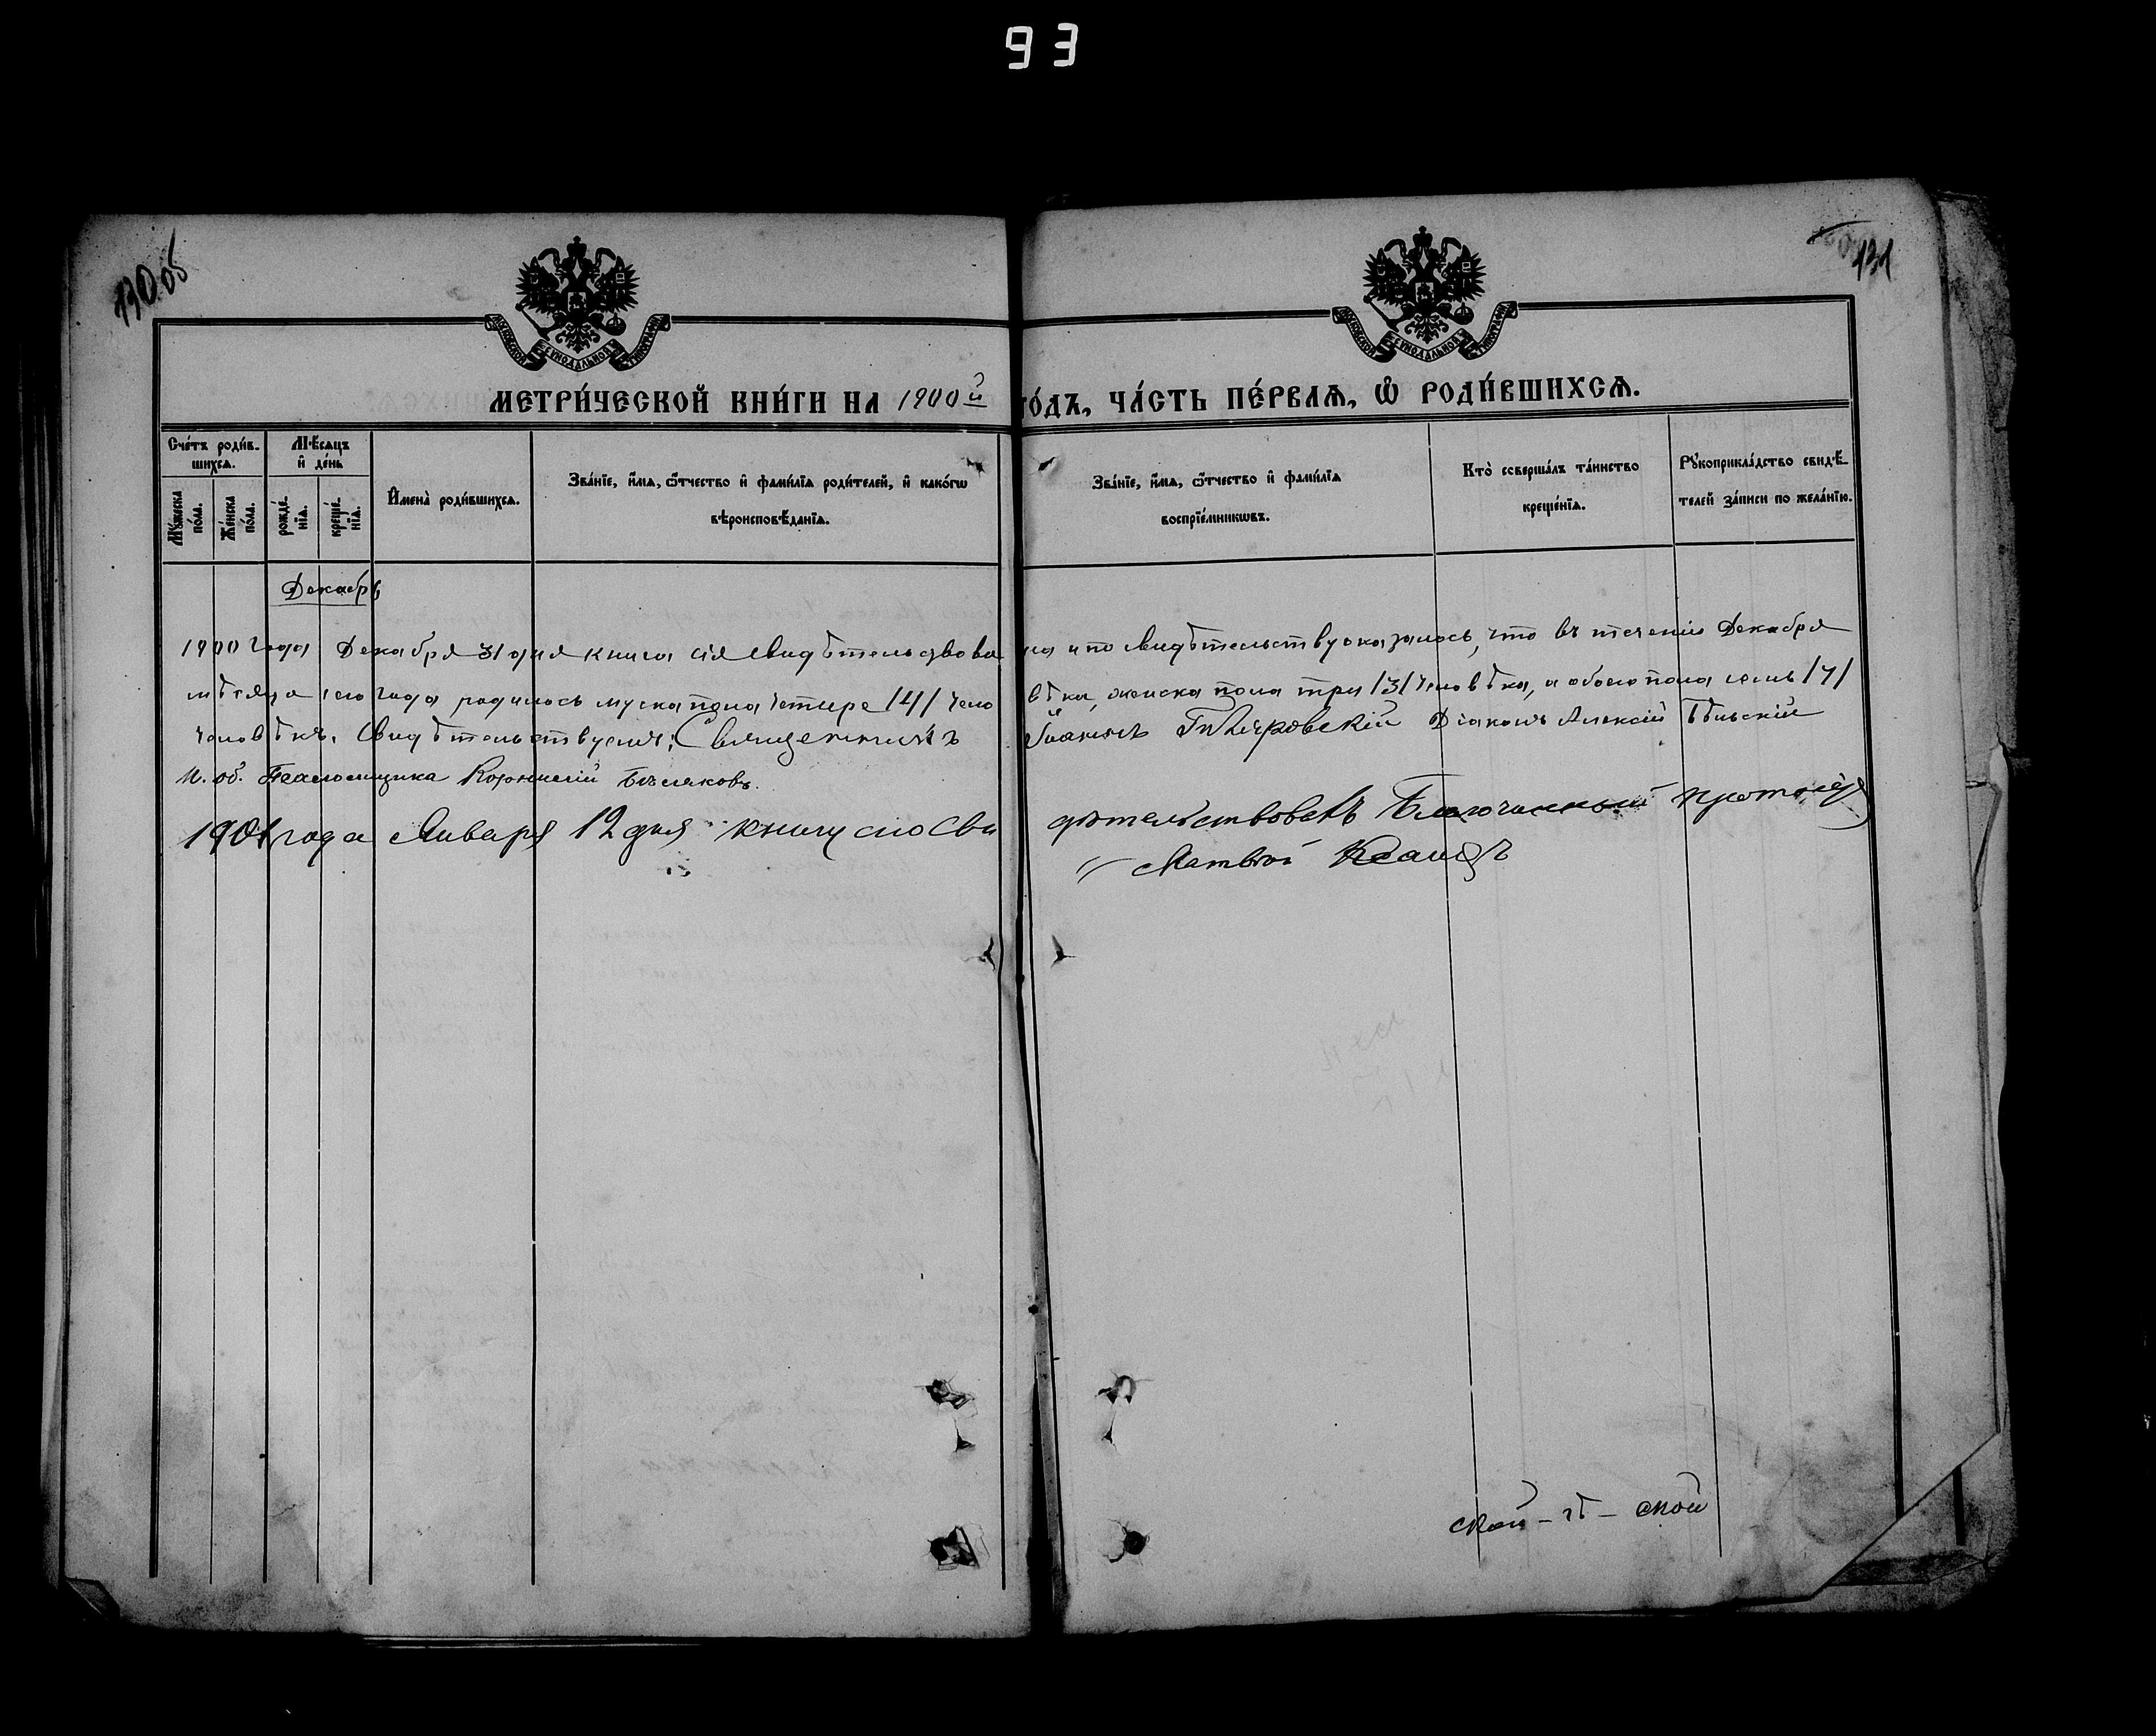 93
130 об
131
МЕТРИ́ЧЕСКОЙ КНИ́ГИ НА 1900й ГО́ДЪ, ЧА́СТЬ ПЕ́РВАѦ, Ѽ РОДИ́ВШИХСѦ.
Сче́тъ роди́вшихсѧ.
Мꙋ́жеска по́ла.
Же́нска по́ла.
Мѣ́сѧцъ и҆ де́нь
рожде́нїѧ.
креще́нїѧ.
И҆мена̀ роди́вшихсѧ.
Зва́нїе, и҆́мѧ, ѻ҆́тчество и҆ фами́лїѧ роди́телей, и҆ како́гѡ
вѣроисповѣ́данїѧ.
Зва́нїе, и҆́мѧ, ѻ҆́тчество и҆ фами́лїѧ
воспрїе́мникѡвъ.
Кто̀ соверша́лъ та́инство
креще́нїѧ.
Рꙋкоприкла́дство свидѣ́-
телей за́писи по жела́нїю.
Декабрь
1900 года Декабря 31 дня книга сія свидѣтельствована и по свидѣтельству оказалось, что въ теченіи Декабря
мѣсяца сего года родилось муска пола четире /4/ человѣка, женска пола три /3/ человѣка, и обоего пола семь /7/
человѣкъ. Свидѣтельствуемъ: Священникъ Іоаннъ Діаконъ Алексій Бѣльскій
И. об. Псаломщика Корнилій Бѣляковъ.
1901 года Января 12 дня книгу сію свидѣтельствовалъ Благочинный протоіерей
Матвѣй
ской – сѣ – ской